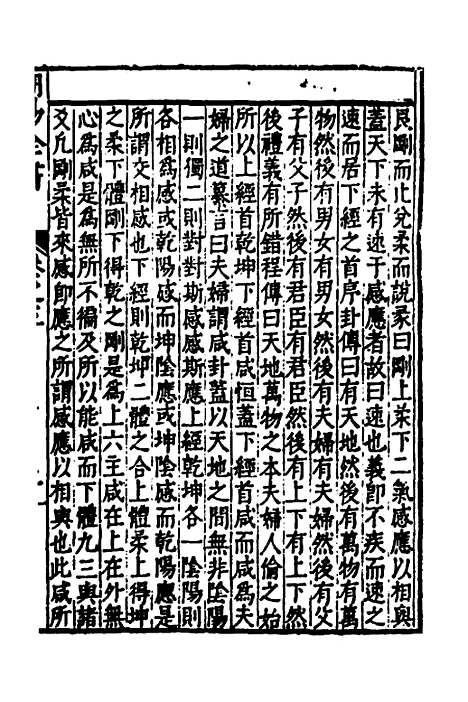 艮剛而止兌柔而說彖曰剛上柔下二氣感應以相與
蓋天下未有速于感應者故曰速也義即不疾而速之
速而居下經之首序卦傳曰有天地然後有萬物有萬
物然後有男女有男女然後有夫婦有夫婦然後有父
子有父子然後有君臣有君臣然後有上下有上下然
後禮義有所錯程傳曰天地萬物之本夫婦人倫之始
所以上經首乾坤下經首咸恒蓋下經首咸而咸為夫
婦之道纂言曰夫婦謂咸卦蓋以天地之間無非陰陽
一則獨二則對對斯感感斯應上經乾坤各一陰陽則
各相為感或乾陽感而坤陰應或坤陰感而乾陽應是
所謂交相感也下經則乾坤二體之合上體柔上得坤
之柔下體剛下得乾之剛是為上六主咸在上在外無
心為咸是為無所不徧及所以能咸而下體九三與諸
爻凡剛柔皆來感即應之所謂感應以相與也此咸所